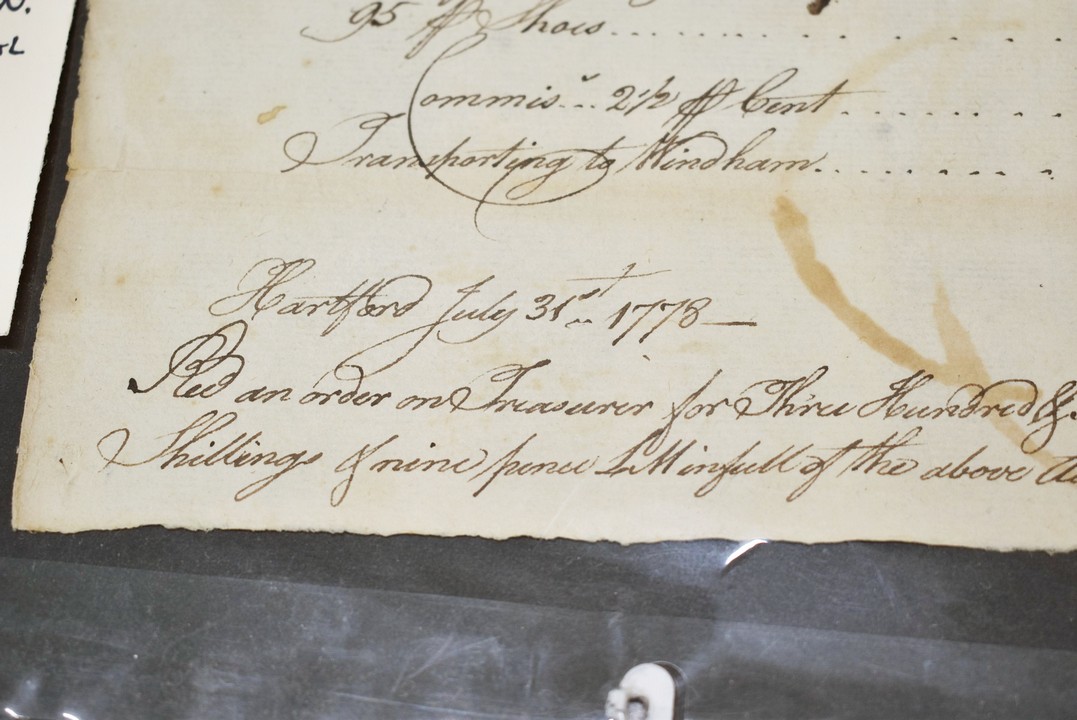 95 ⅌ Shoes......
Commiss.n... 2½ ⅌ Cent........
Transporting to Windham.........
Hartford July 31st.. 1778—
Recd an order on Treasurer for Three Hundred &
Shillings & nine pence LM in full of the above